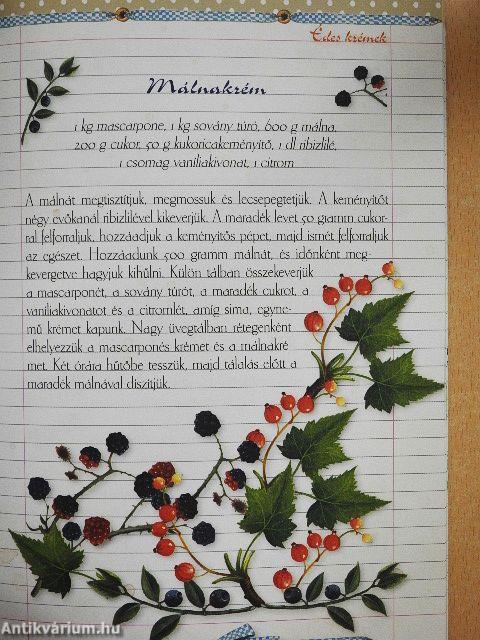 Édes krémek
Málnakrém
1 kg mascarpone, 1 kg sovány túró, 600 g málna,
200 g cukor, 50 g kukoricakeményítő, 1 dl ribizlilé,
1 csomag vaníliakivonat, 1 citrom
A málnát megtisztítjuk, megmossuk és lecsepegtetjük. A keményítőt
négy evőkanál ribizlilével kikeverjük. A maradék levet 50 gramm cukor-
ral felforraljuk, hozzáadjuk a keményítős pépet, majd ismét felforraljuk
az egészet. Hozzáadunk 500 gramm málnát, és időnként meg-
kevergetve hagyjuk kihűlni. Külön tálban összekeverjük
a mascarponét, a sovány túrót, a maradék cukrot, a
vaníliakivonatot és a citromlét, amíg sima, egyne-
mű krémet kapunk. Nagy üvegtálban rétegenként
elhelyezzük a mascarponés krémet és a málnakré
met. Két órára hűtőbe tesszük, majd tálalás előtt a
maradék málnával díszítjük.
Antikvárium.hu